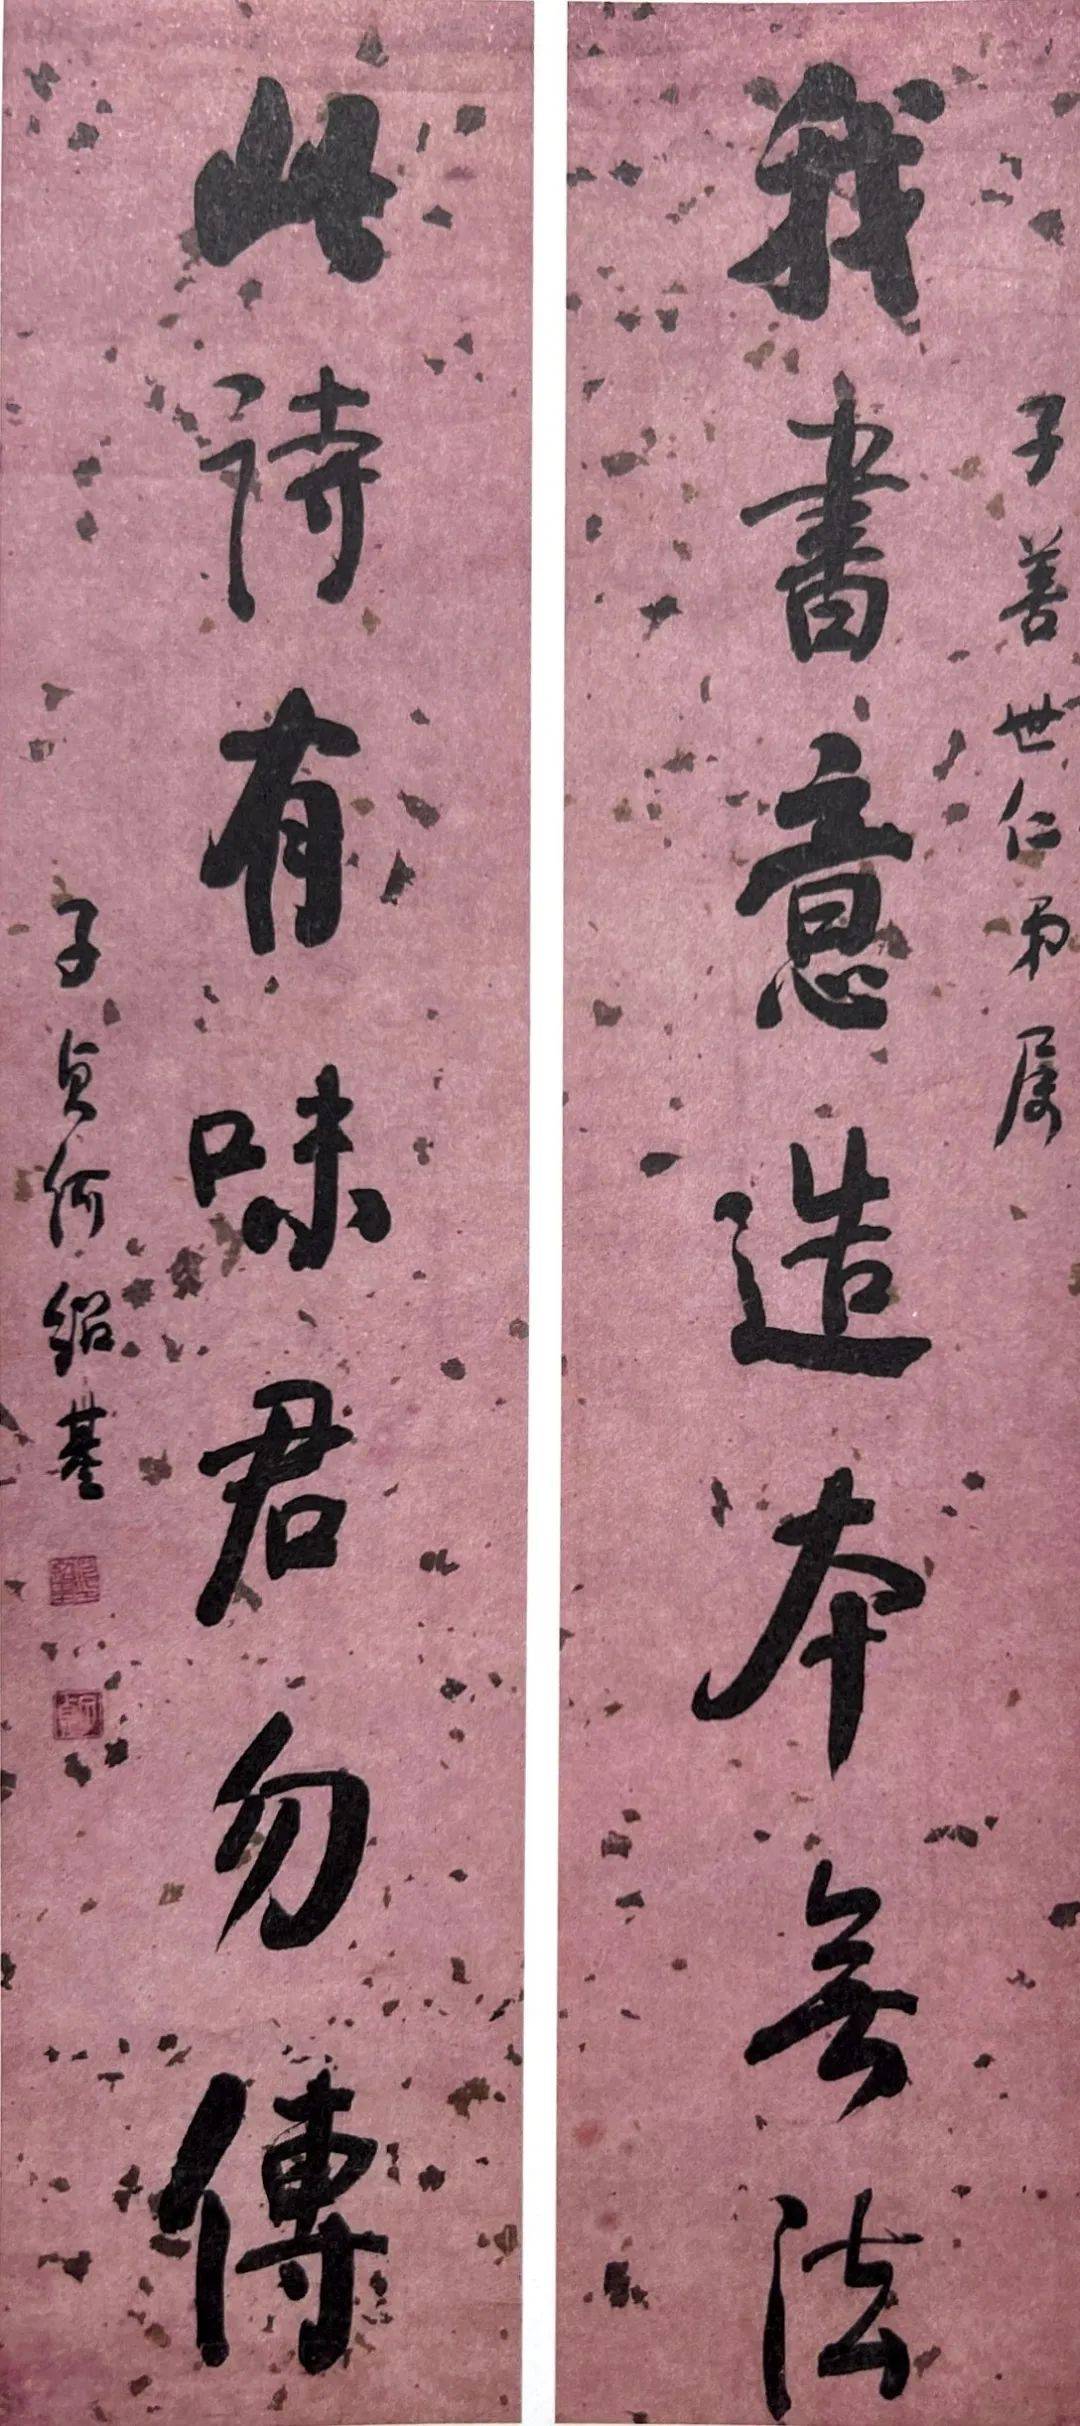 子善世仁弟属
我書意造本無法
此詩有味君勿傳
子貞何紹基